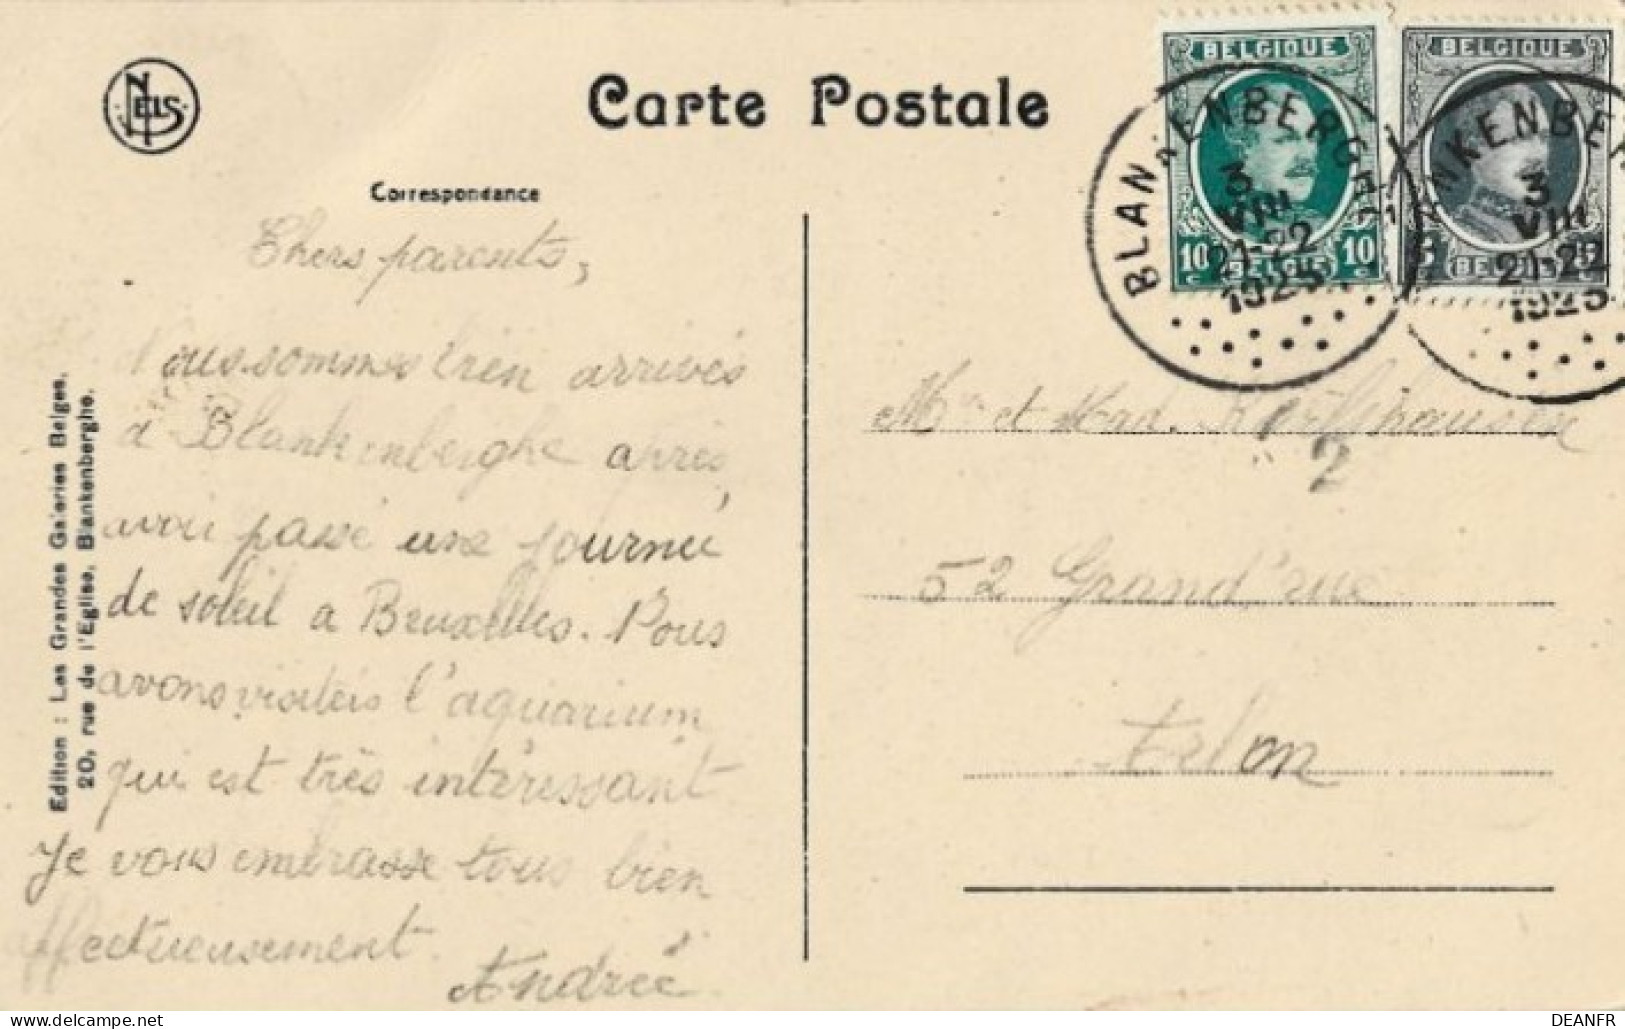 NELS
Carte Postale
Correspondance
BELGIQUE
10 c BELGIË 10 c
BELGIQUE
BELGIË
BLANKENBERGHE
3
VIII
21-22
1925
BLANKENBERGHE
3
VIII
21-22
1925
Chers parents,
Nous sommes bien arrivés
à Blankenberghe après
avoir passé une journée
de soleil a Bruxelles. Nous
avons visités l'aquarium
qui est très intéressant
Je vous embrasse tous bien
affectueusement.
Andrée
Mr et Mad.
2
52 Grand'rue
Arlon
Edition : Les Grandes Galeries Belges.
20, rue de l'Eglise. Blankenberghe.
www.delcampe.net
DEANFR